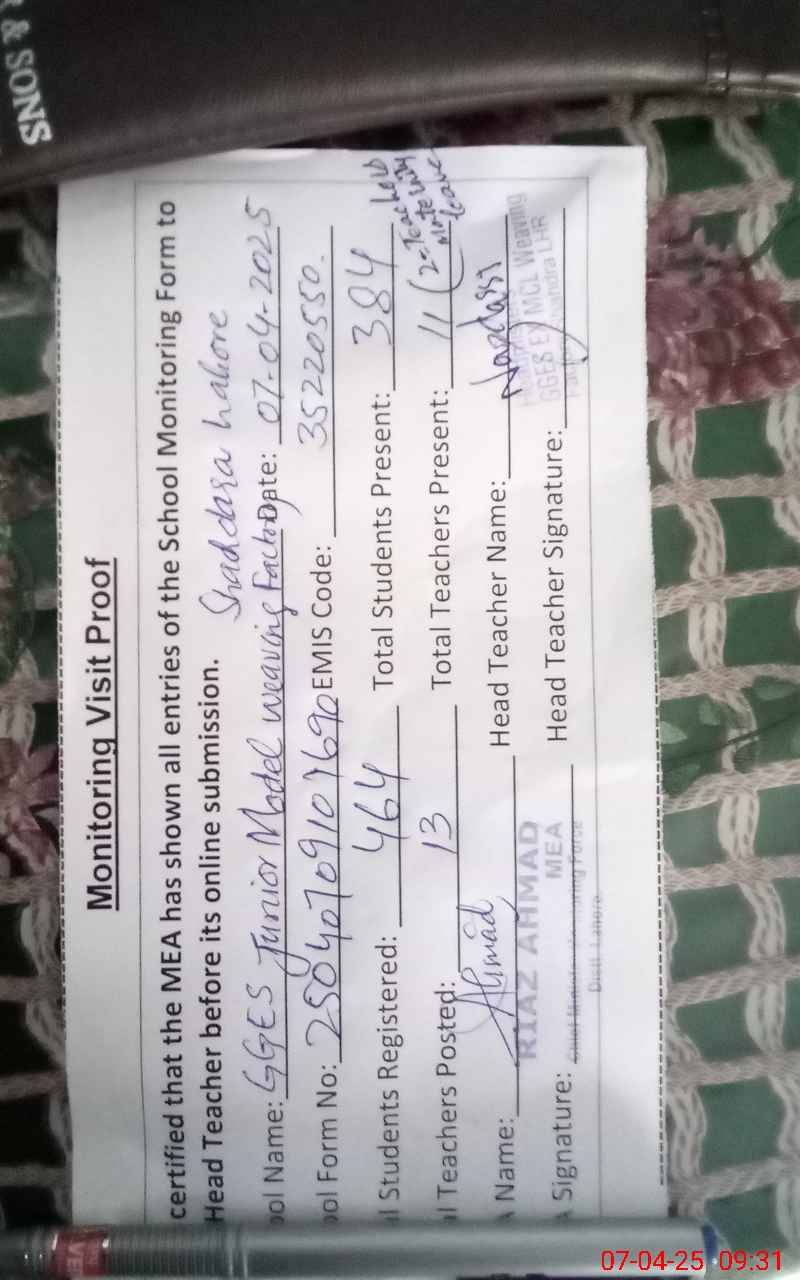 & SONS
Monitoring Visit Proof
certified that the MEA has shown all entries of the School Monitoring Form to
Head Teacher before its online submission.
Shaddara Lahore
ool Name: GGES Junior Model Weaving Factory Date: 07-04-2025
ool Form No: EMIS Code: 35220550.
l Students Registered: 464 Total Students Present: 384
l Teachers Posted: 13 Total Teachers Present: 11 (2-Teachers
leave
Name: Ahmad Head Teacher Name:
RIAZ AHMAD
MEA
GGES EX MCL Weaving
LHR
Signature: Head Teacher Signature:
Distt. Lahore
07-04-25 09:31